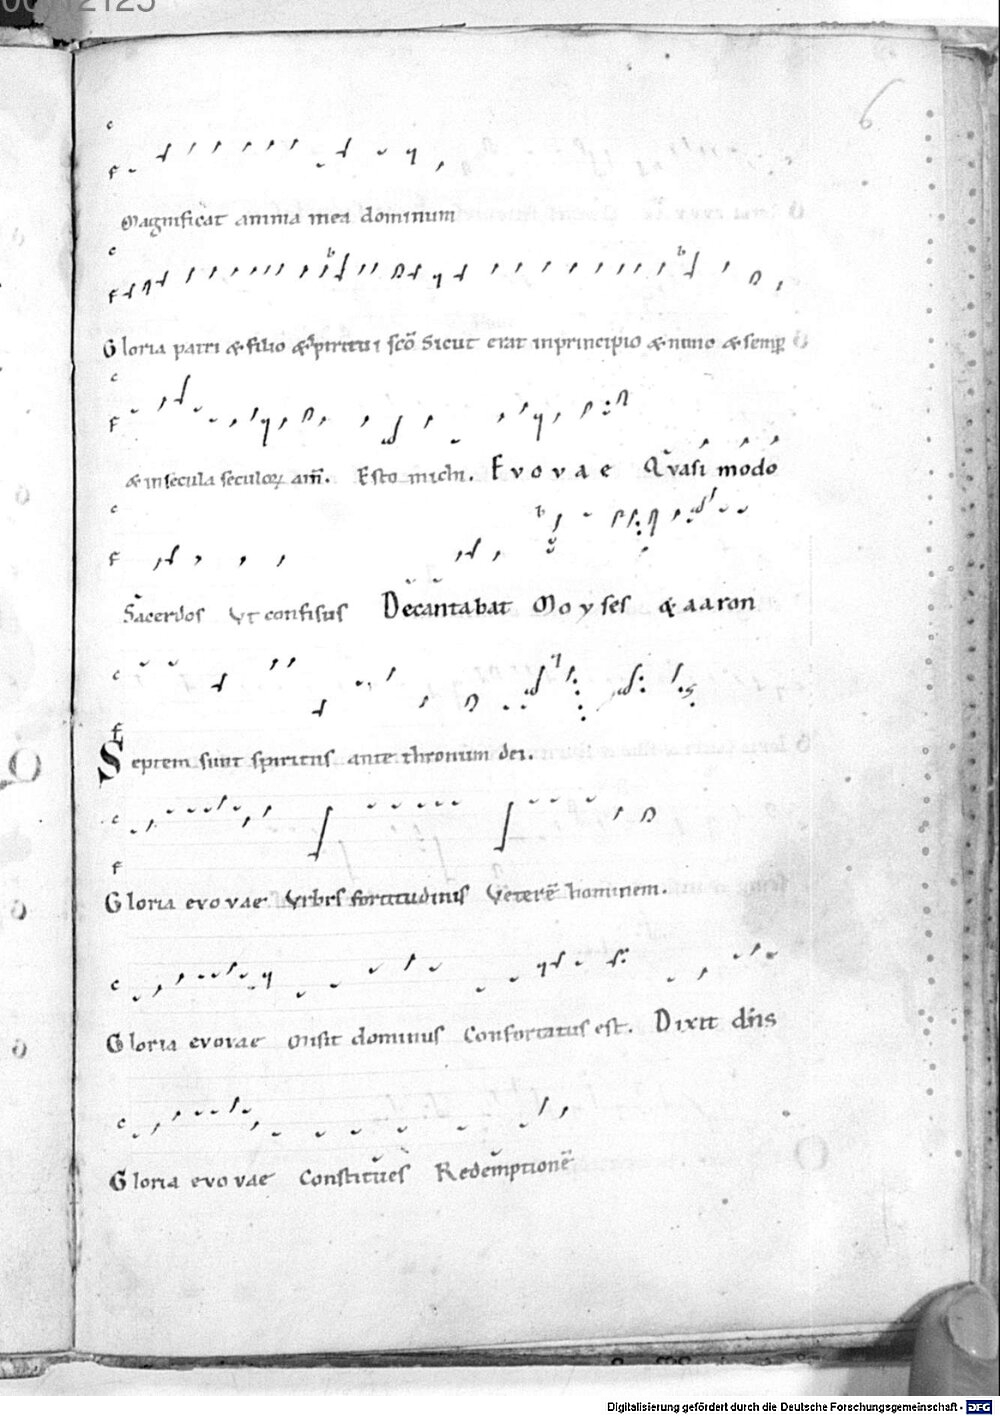 00012125
6
c
F
Magnificat anima mea dominum
c
F
Gloria patri & filio & spiritui scō Sicut erat inprincipio & nunc & semp
c
F
& insecula seculoꝝ am̄. Esto michi. Evovae Quasi modo
c
F
Sacerdos Ut confisus Decantabat Moyses & aaron
c
F
Septem sunt spiritus ante thronum dei.
c
F
Gloria evovae Urbis fortitudinis Veterē hominem.
c
Gloria evovae dominus Confortatus est. Dixit dn̄s
c
Gloria evovae Constitues Redemptionē
Digitalisierung gefördert durch die Deutsche Forschungsgemeinschaft - DFG